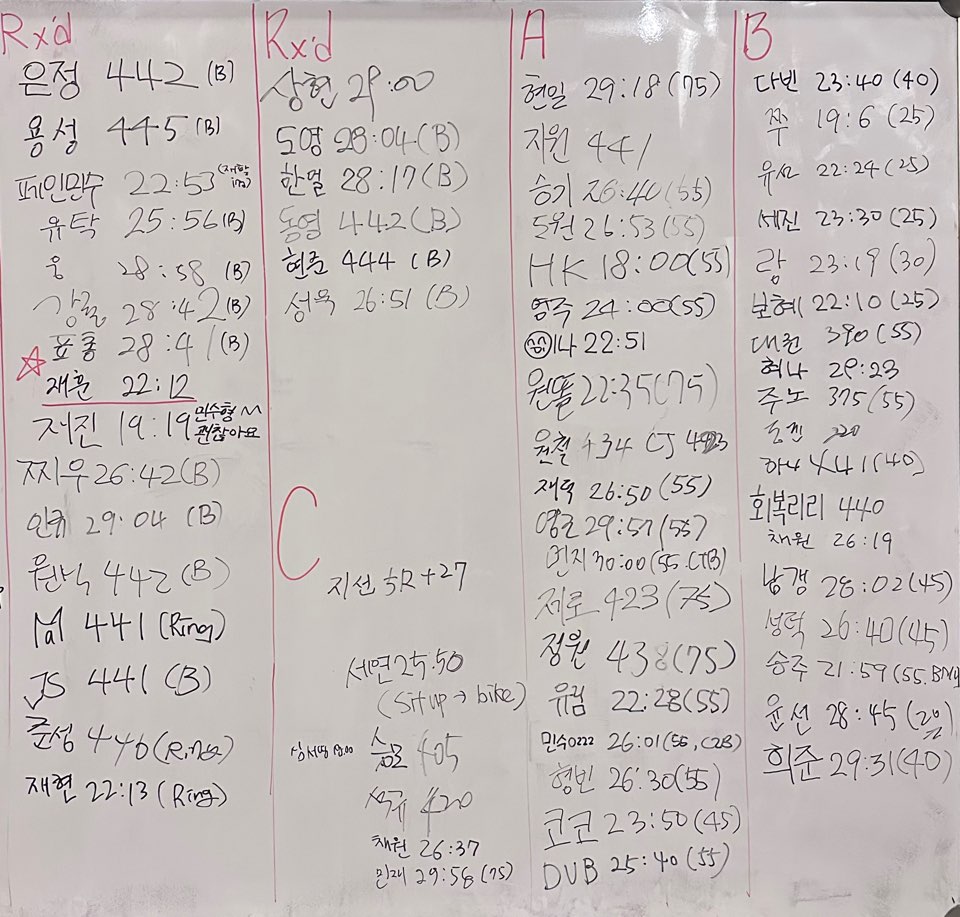 Rx'd
은정 442 (B)
용성 445 (B)
페인민수 22:53
유탁 25:56(B)
웅 28:58 (B)
28:42(B)
표종 28:41(B)
재훈 22:12
저진 19:19 민수형 ㅆ
괜찮아요
찌우 26:42(B)
인규 29:04 (B)
원식 442(B)
441 (Ring)
JS 441 (B)
준성 446(Ring)
재현 22:13 (Ring)
Rx'd
상현 29:00
도영 28:04(B)
한얼 28:17(B)
동열 442(B)
현준 444 (B)
성욱 26:51 (B)
C
지선 5R+27
세연 25:50
(Sit up → bike)
405
석규 420
채원 26:37
민재 29:58(75)
A
현일 29:18(75)
지원 441
승기 26:40(55)
도원 26:53(55)
HK 18:00(55)
영주 24:00(55)
이나 22:51
원똘 22:35(75)
원철 434 CJ
재덕 26:50 (55)
29:57(55)
먼지 30:00(55.CTB)
제로 423(75)
정원 438(75)
유림 22:28(55)
민수0222 26:01(55,C2B)
형빈 26:30(55)
코코 23:50(45)
DUB 25:40(55)
B
다빈 23:40(40)
쭈 19:6(25)
유선 22:24(25)
세진 23:30(25)
람 23:19(30)
보혜 22:10(25)
대원 390(55)
혜나 29:23
주노 375(55)
220
하나 441(40)
회복리리 440
채원 26:19
남갱 28:02(45)
성덕 26:40(45)
승주 21:59(55.BMU)
윤선 28:45
희준 29:31(40)